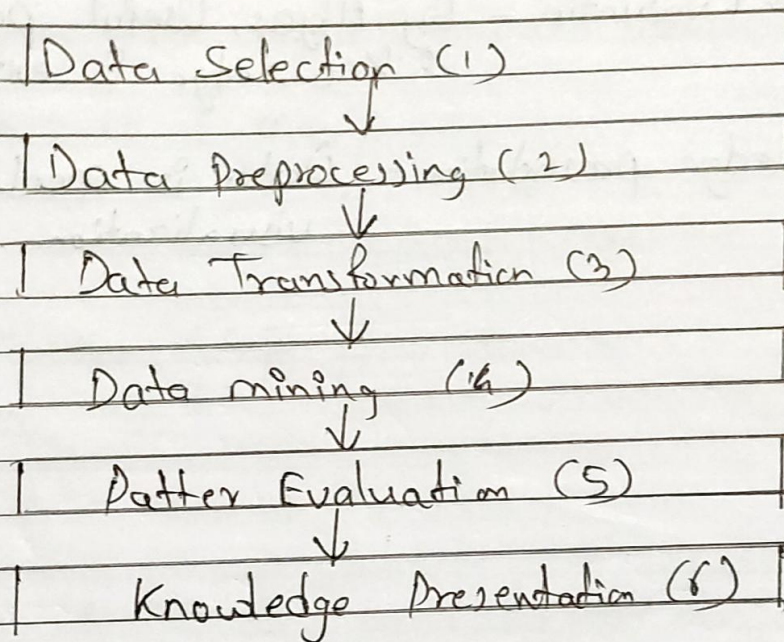 Data Selection (1)
Data Preprocessing (2)
Data Transformation (3)
Data mining (4)
Patter Evaluation (5)
Knowledge Presentation (6)